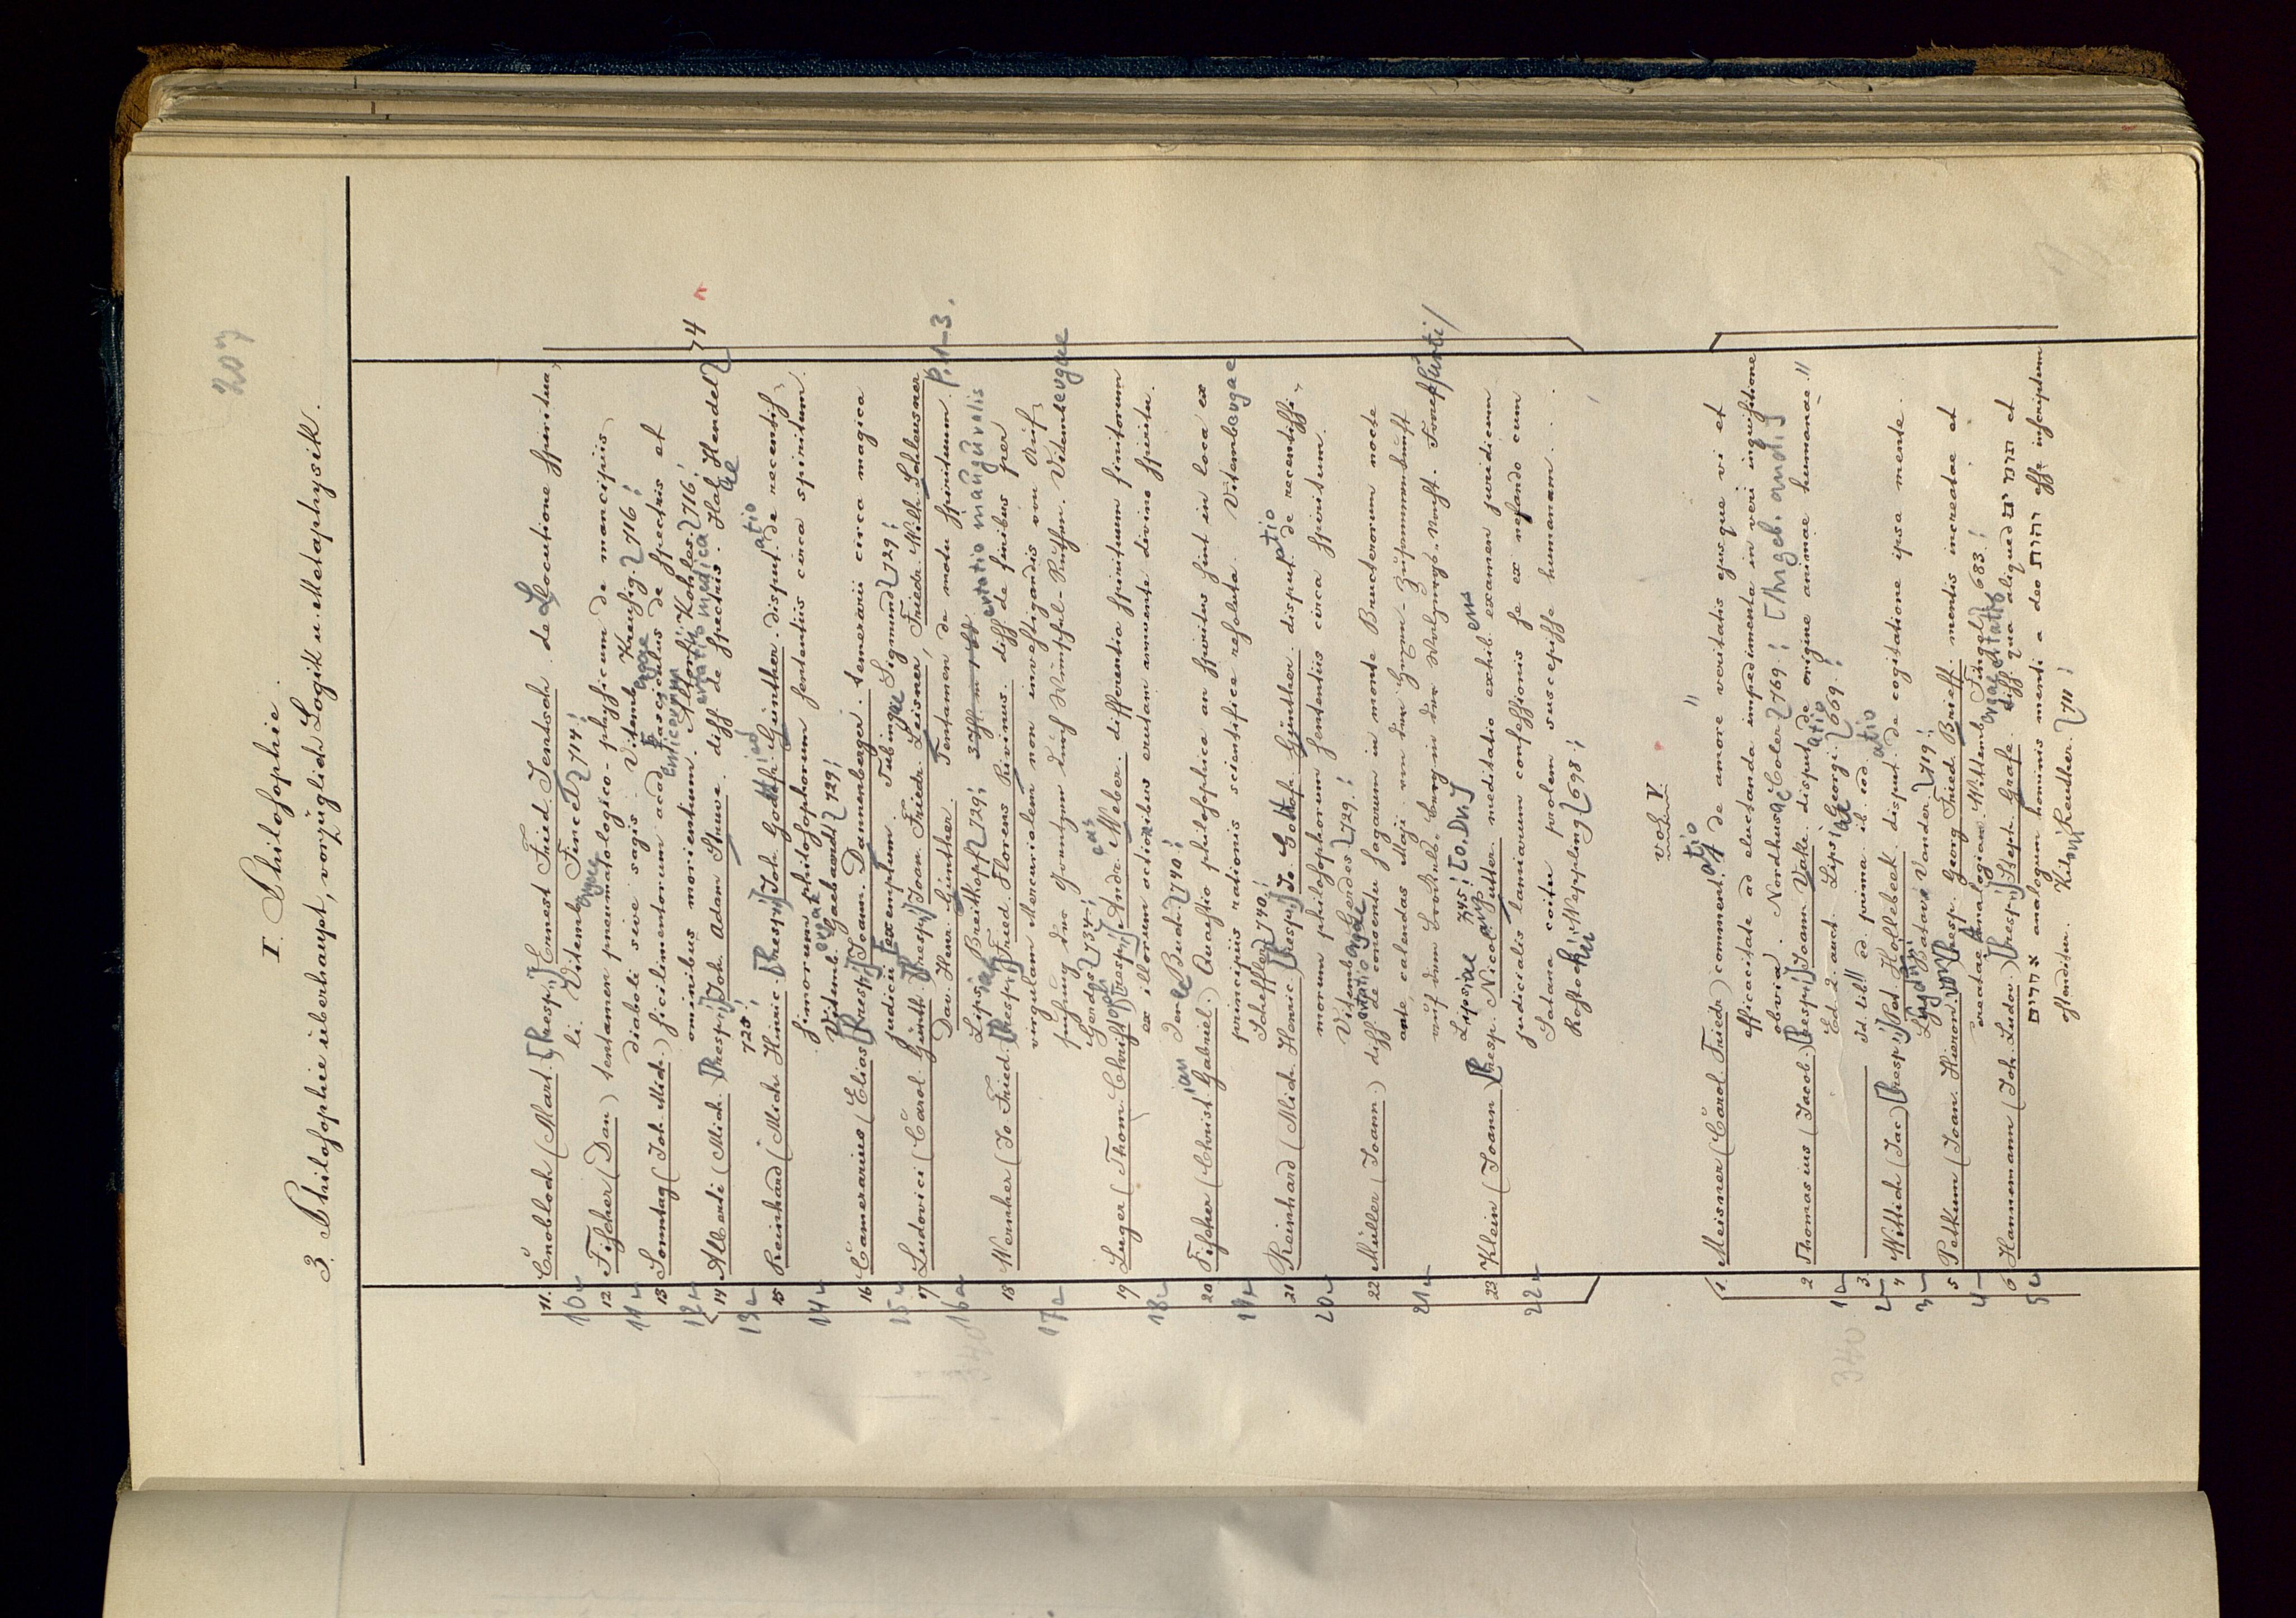 207
I. Philosophie.
3. Philosophie überhaupt, vorzüglich Logik u. Metaphysik.
11. Cnobloch (Mart.) [Resp.] Ernest Fried. Jentsch de Locutione spirituali. Vitembergae Fincel 714!
10
12 Fischer (Dan.) tentamen pneumatologico-physicum de mancipiis
diaboli sive sagis. Vitembergae Kreusig. 716!
11
13 Sonntag (Joh. Mich.) sicilimentorum academicorum Fasciculus de spectris et
ominibus morientium. Altorfii Kohles. 716!
12
14 Alberti (Mich.) [Resp.] Joh. Adam Struve. dissertatio medica de spectris. Halae Hendel
725!
74
13
15 Reinhard (Mich. Hinric. [Resp.] Joh. Gottfried Günther. disputatio de recentis
simorum philosophorum sententiis circa spiritum.
Vitembergae Gaebaerdt 729!
14
16 Camerarius (Elias) [Resp.] Joann. Dannenberger. temerarii circa magica
judicii exemplum. Tubingae Sigmund 729!
15
17 Ludovici (Carol. Günth.) [Resp.] Joan. Friedr. Leisner, Friedr. Wilh. Schleusner
Dav. Henr. Günther. Tentamen de motu spirituum. P. 1-3.
Lipsiae Breitkopf 729!
16
18 Wernher (Jo. Fried. [Resp.] Fried. Florens Rivinus. dissertatio inauguralis de finibus per
virgulam Mercurialem non investigandis von Auf,
suchung der Grentzen durch Wünschel-Ruthen. Vitembergae
Gerdes 737!
17
19 Luger (Thom. Christoph.) [Resp.] Andreas Weber. differentia spirituum finitorum
ex illorum actionibus erutam annuente divino spiritu.
Jenae Buch. 740!
18
20 Fischer (Christian Gabriel.) Quaestio philosophica an spiritus sint in loco ex
principiis rationis scientifice resoluta. Vitembergae
Scheffler 740!
19
21 Reinhard (Mich. Henric.) [Resp.] Jo Gottfr. Günther. disputatio de recentissi-
morum philosophorum sententiis circa spiritum.
Vitembergae Gerdes 729!
20
22 Müller (Joann.) dissertatio de conventu sagarum in monte Bructerorum nocte
ante calendas Maji von der Hexen-Zusammenkunft
auf dem Brocksberg in der Walpurgs-Nacht. Francofurti/
Lipsiae 745! [o. Dr.]
21
23 Klein (Joann) [Resp. Nicolaus Putter. meditatio exhibens examen juridicum
judicialis lamiarum confessionis se ex nefando cum
Satana coitu prolem suscepisse humanam.
Rostochii Weppling 698!
22
vol. V
1. Meisner (Carol. Friedr.) commentatio de amore veritatis ejusque vi et
efficacitate ad eluctanda impedimenta in veri inquisitione
obvia. Nordhusae Coler 769! [Angeb. and.]
2 Thomasius (Jacob.) [Resp.] Joann Vake. disputatio de origine animae humanae.
Ed. 2. auct. Lipsiae Georgi. 669!
1
3. Id. lib. ed. prima ib. eod.
2
4 Wittich (Jac) [Resp.] Pet. Hollebeek. disputatio de cogitatione ipsa mente.
Lugduni Batavor. Vander. 719!
3
5 Petkum (Joan. Hieron. von [Resp. Georg Fried. Brieff. mentis increatae et
creatae Analogiam. Wittembergae Fingel 683!
4
6 Hannemann (Joh. Ludov.) [Resp.] Steph. Grafe. diss. qua aliquod תומים et
אורים analogum hominis menti a deo יהוה esse inscriptum
ostenditur. Kiloni Reuther. 711!
5
340
340